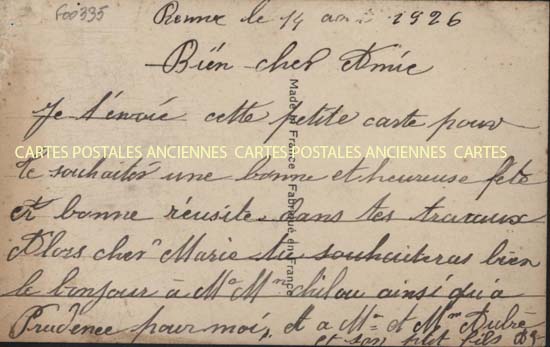 F00335
le 14 1926
Bién cher Amie
Je t'envoié cette petite carte pour
CARTES POSTALES ANCIENNES CARTES POSTALES ANCIENNES CARTES
te souhaiter une bonne et heureuse fete
et bonne réusite dans tes travaux
Alors cher Marie tu souhaiteras bien
le bonjour à Mr Mme ainsi qu'a
Prudence pour moi, et a Mr et Mme
et son petit fils
Made in France - Fabriqué en France